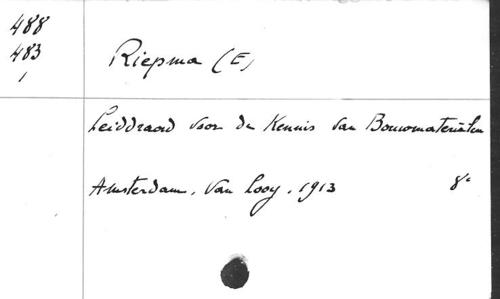 488
483
1
Riepma (E)
Leiddraad voor de Kennis van Bouwmaterialen
Amsterdam, Van Looy, 1913 8°